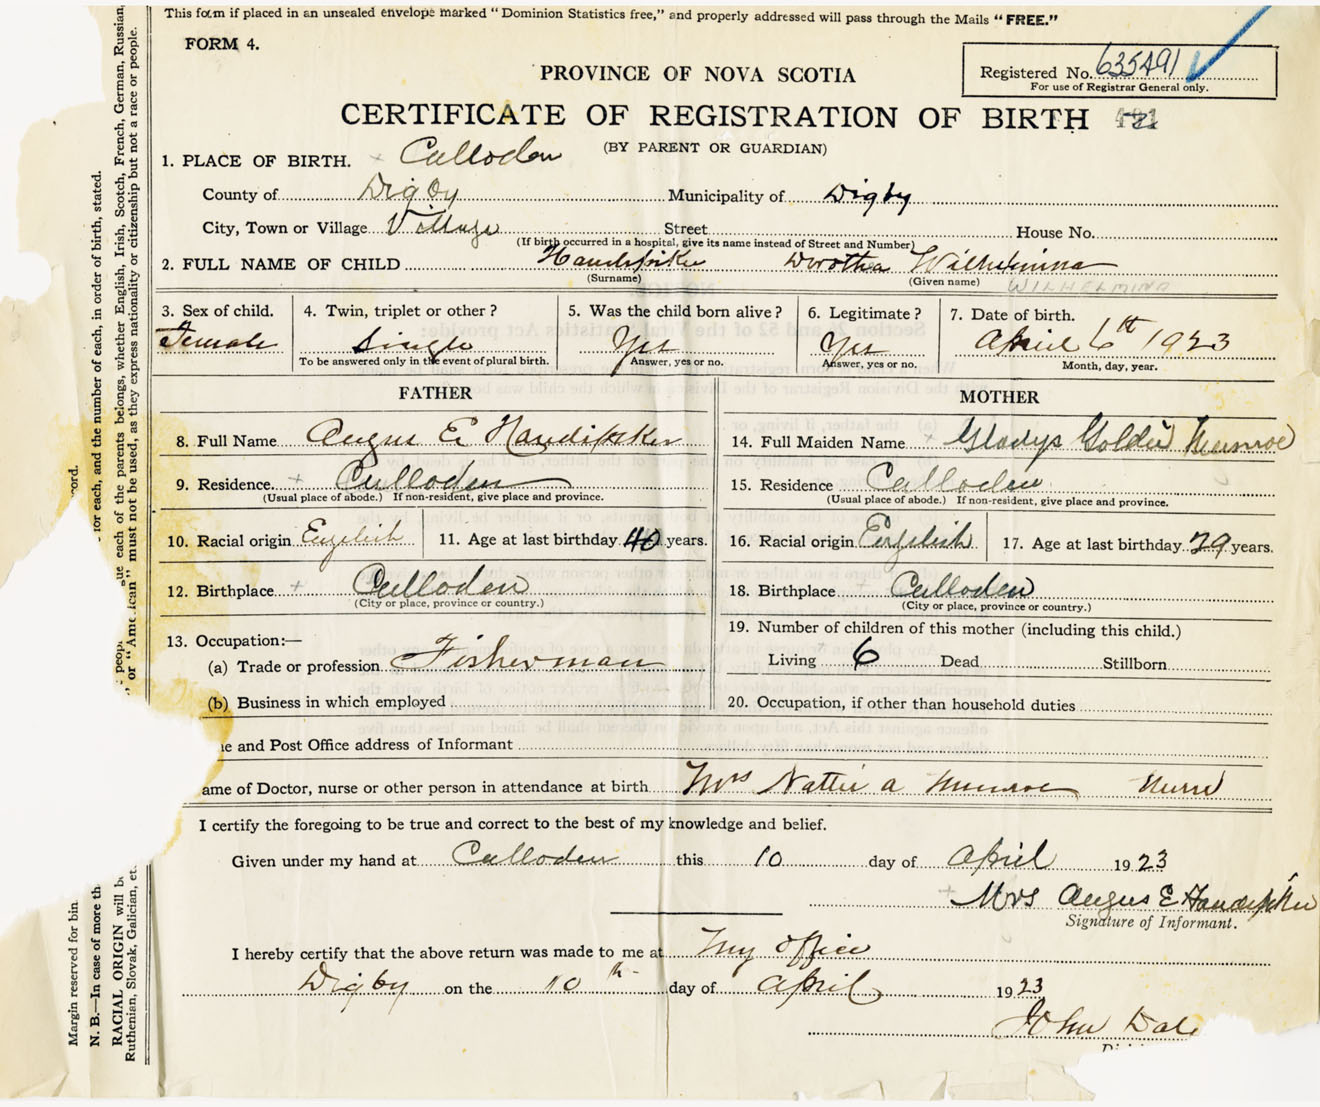 This form if placed in an unsealed envelope marked "Dominion Statistics free," and properly addressed will pass through the Mails "FREE."
FORM 4.
Registered No. 635491
For use of Registrar General only.
PROVINCE OF NOVA SCOTIA
CERTIFICATE OF REGISTRATION OF BIRTH
(BY PARENT OR GUARDIAN)
1. PLACE OF BIRTH. Culloden
County of Digby Municipality of Digby
City, Town or Village Village Street House No.
(If birth occurred in a hospital, give its name instead of Street and Number)
2. FULL NAME OF CHILD Handspiker Dorothea Wilhelmina
(Surname) (Given name) WILHELMINA
3. Sex of child. 4. Twin, triplet or other? 5. Was the child born alive? 6. Legitimate? 7. Date of birth.
Female Single Yes Yes April 6th 1923
To be answered only in the event of plural birth. Answer, yes or no. Answer, yes or no. Month, day, year.
FATHER MOTHER
8. Full Name Angus E Handspiker 14. Full Maiden Name Gladys Goldie Munroe
9. Residence Culloden 15. Residence Culloden
(Usual place of abode.) If non-resident, give place and province. (Usual place of abode.) If non-resident, give place and province.
10. Racial origin English 11. Age at last birthday 40 years. 16. Racial origin English 17. Age at last birthday 29 years.
12. Birthplace Culloden 18. Birthplace Culloden
(City or place, province or country.) (City or place, province or country.)
13. Occupation:— 19. Number of children of this mother (including this child.)
(a) Trade or profession Fisherman Living 6 Dead Stillborn
(b) Business in which employed 20. Occupation, if other than household duties
e and Post Office address of Informant
ame of Doctor, nurse or other person in attendance at birth Mrs Nattie a Munroe Nurse
I certify the foregoing to be true and correct to the best of my knowledge and belief.
Given under my hand at Culloden this 10 day of April 1923
Mrs Angus E Handspiker
Signature of Informant.
I hereby certify that the above return was made to me at My office
Digby on the 10th day of April 1923
John Dal
Margin reserved for bin ord.
N. B.—In case of more th for each, and the number of each, in order of birth, stated.
RACIAL ORIGIN will b ue each of the parents belongs, whether English, Irish, Scotch, French, German, Russian,
Ruthenian, Slovak, Galician, et or "American" must not be used, as they express nationality or citizenship but not a race or people.